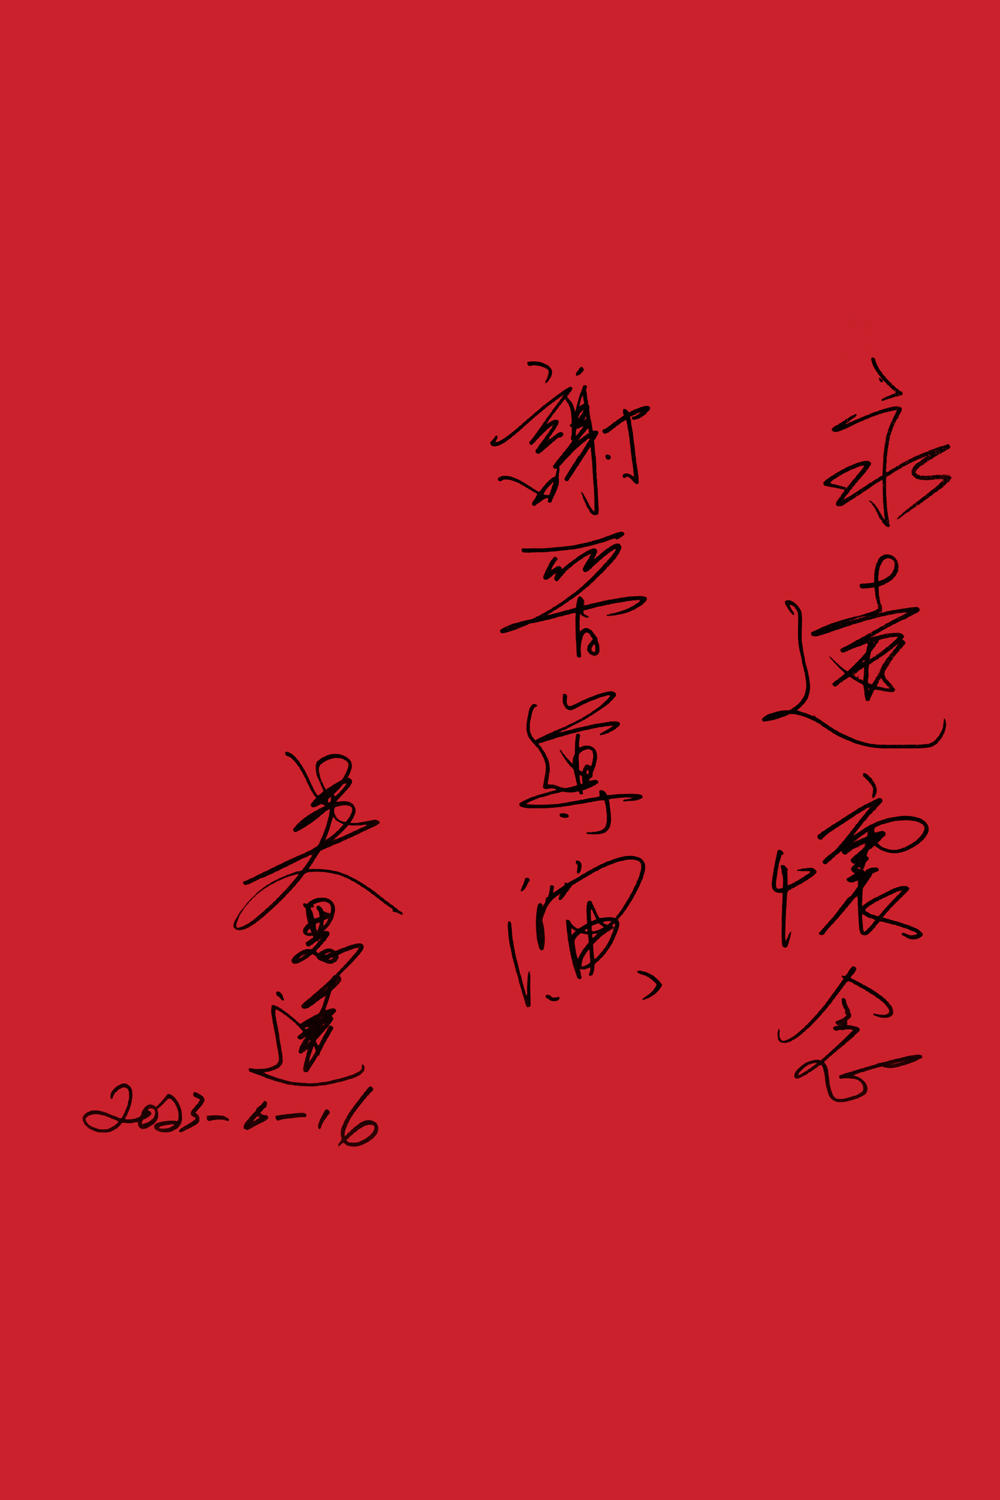 永遠懷念
謝晉導演
吴思遠
2023-6-16